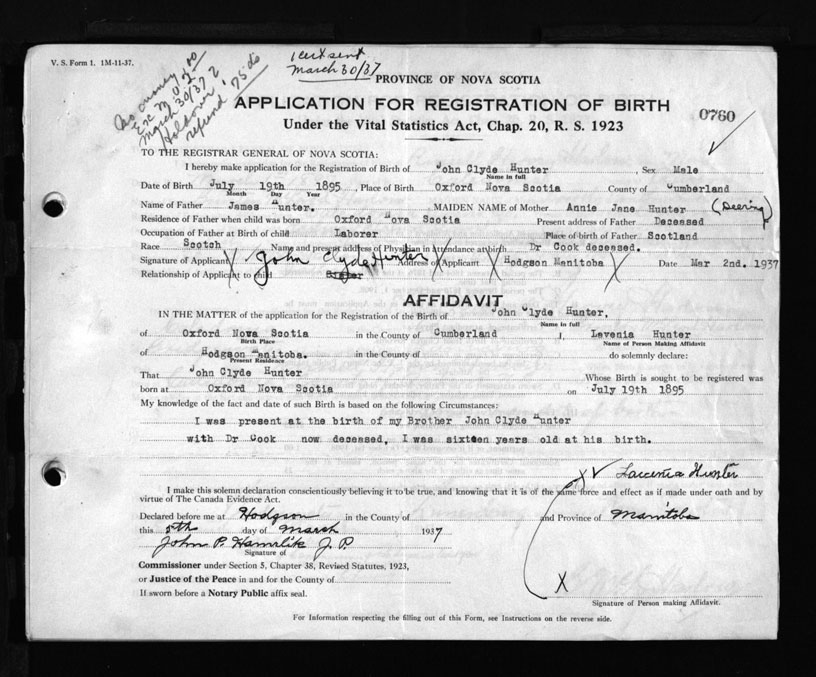 V. S. Form 1. 1M-11-37.
No money
Exc M O 2.00
March 30/37
Holdover
refund 75 cts
1 cert sent
March 30/37
PROVINCE OF NOVA SCOTIA
APPLICATION FOR REGISTRATION OF BIRTH
0760
Under the Vital Statistics Act, Chap. 20, R. S. 1923
TO THE REGISTRAR GENERAL OF NOVA SCOTIA:
I hereby make application for the Registration of Birth of John Clyde Hunter, Sex Male
Name in full
Date of Birth July 19th 1895, Place of Birth Oxford Nova Scotia County of Cumberland
Month Day Year
Name of Father James Hunter. MAIDEN NAME of Mother Annie Jane Hunter (Deering)
Residence of Father when child was born Oxford Nova Scotia Present address of Father Deceased
Occupation of Father at Birth of child Laborer Place of birth of Father Scotland
Race Scotch Name and present address of Physician in Attendance at birth Dr Cook deceased.
Signature of Applicant X John Clyde Hunter X Address of Applicant X Hodgson Manitoba X Date Mar 2nd. 1937
Relationship of Applicant to child Sister
AFFIDAVIT
IN THE MATTER of the application for the Registration of the Birth of John Clyde Hunter,
Name in full
of Oxford Nova Scotia in the County of Cumberland I, Levenia Hunter
Birth Place Name of Person Making Affidavit
of Hodgson Manitoba. in the County of do solemnly declare:
Present Residence
That John Clyde Hunter Whose Birth is sought to be registered was
born at Oxford Nova Scotia on July 19th 1895
My knowledge of the fact and date of such Birth is based on the following Circumstances:
I was present at the birth of my Brother John Clyde Hunter
with Dr Cook now deceased, I was sixteen years old at his birth.
Hunter
I make this solemn declaration conscientiously believing it to be true, and knowing that it is of the same force and effect as if made under oath and by
virtue of The Canada Evidence Act.
Declared before me at Hodgson in the County of and Province of Manitoba
this 5th day of March 1937
John P. Hamrlik J. P.
Signature of
Commissioner under Section 5, Chapter 38, Revised Statutes, 1923,
or Justice of the Peace in and for the County of
If sworn before a Notary Public affix seal.
X
Signature of Person making Affidavit.
For Information respecting the filling out of this Form, see Instructions on the reverse side.